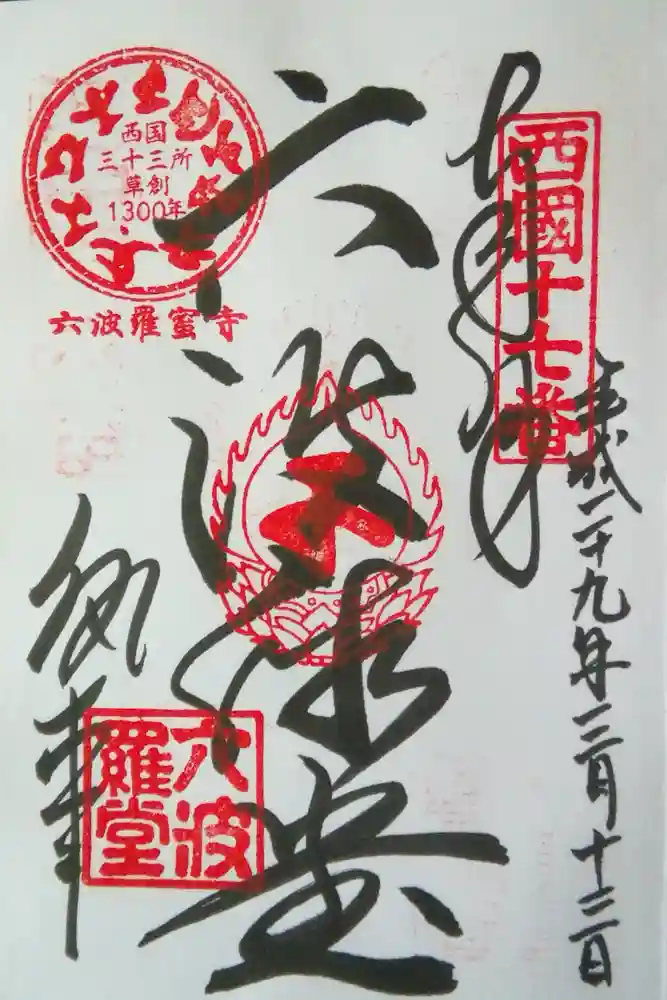 奉拝
西國十七番
平成二十九年三月十三日
六波羅堂
西国
三十三所
草創
1300年
六波羅蜜寺
六波
羅堂